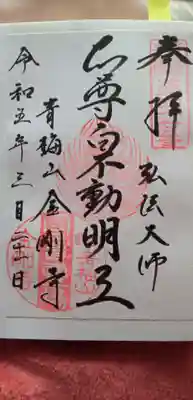 奉拝
弘法大師
本尊白不動明王
青梅山金剛寺
令和五年三月二十一日